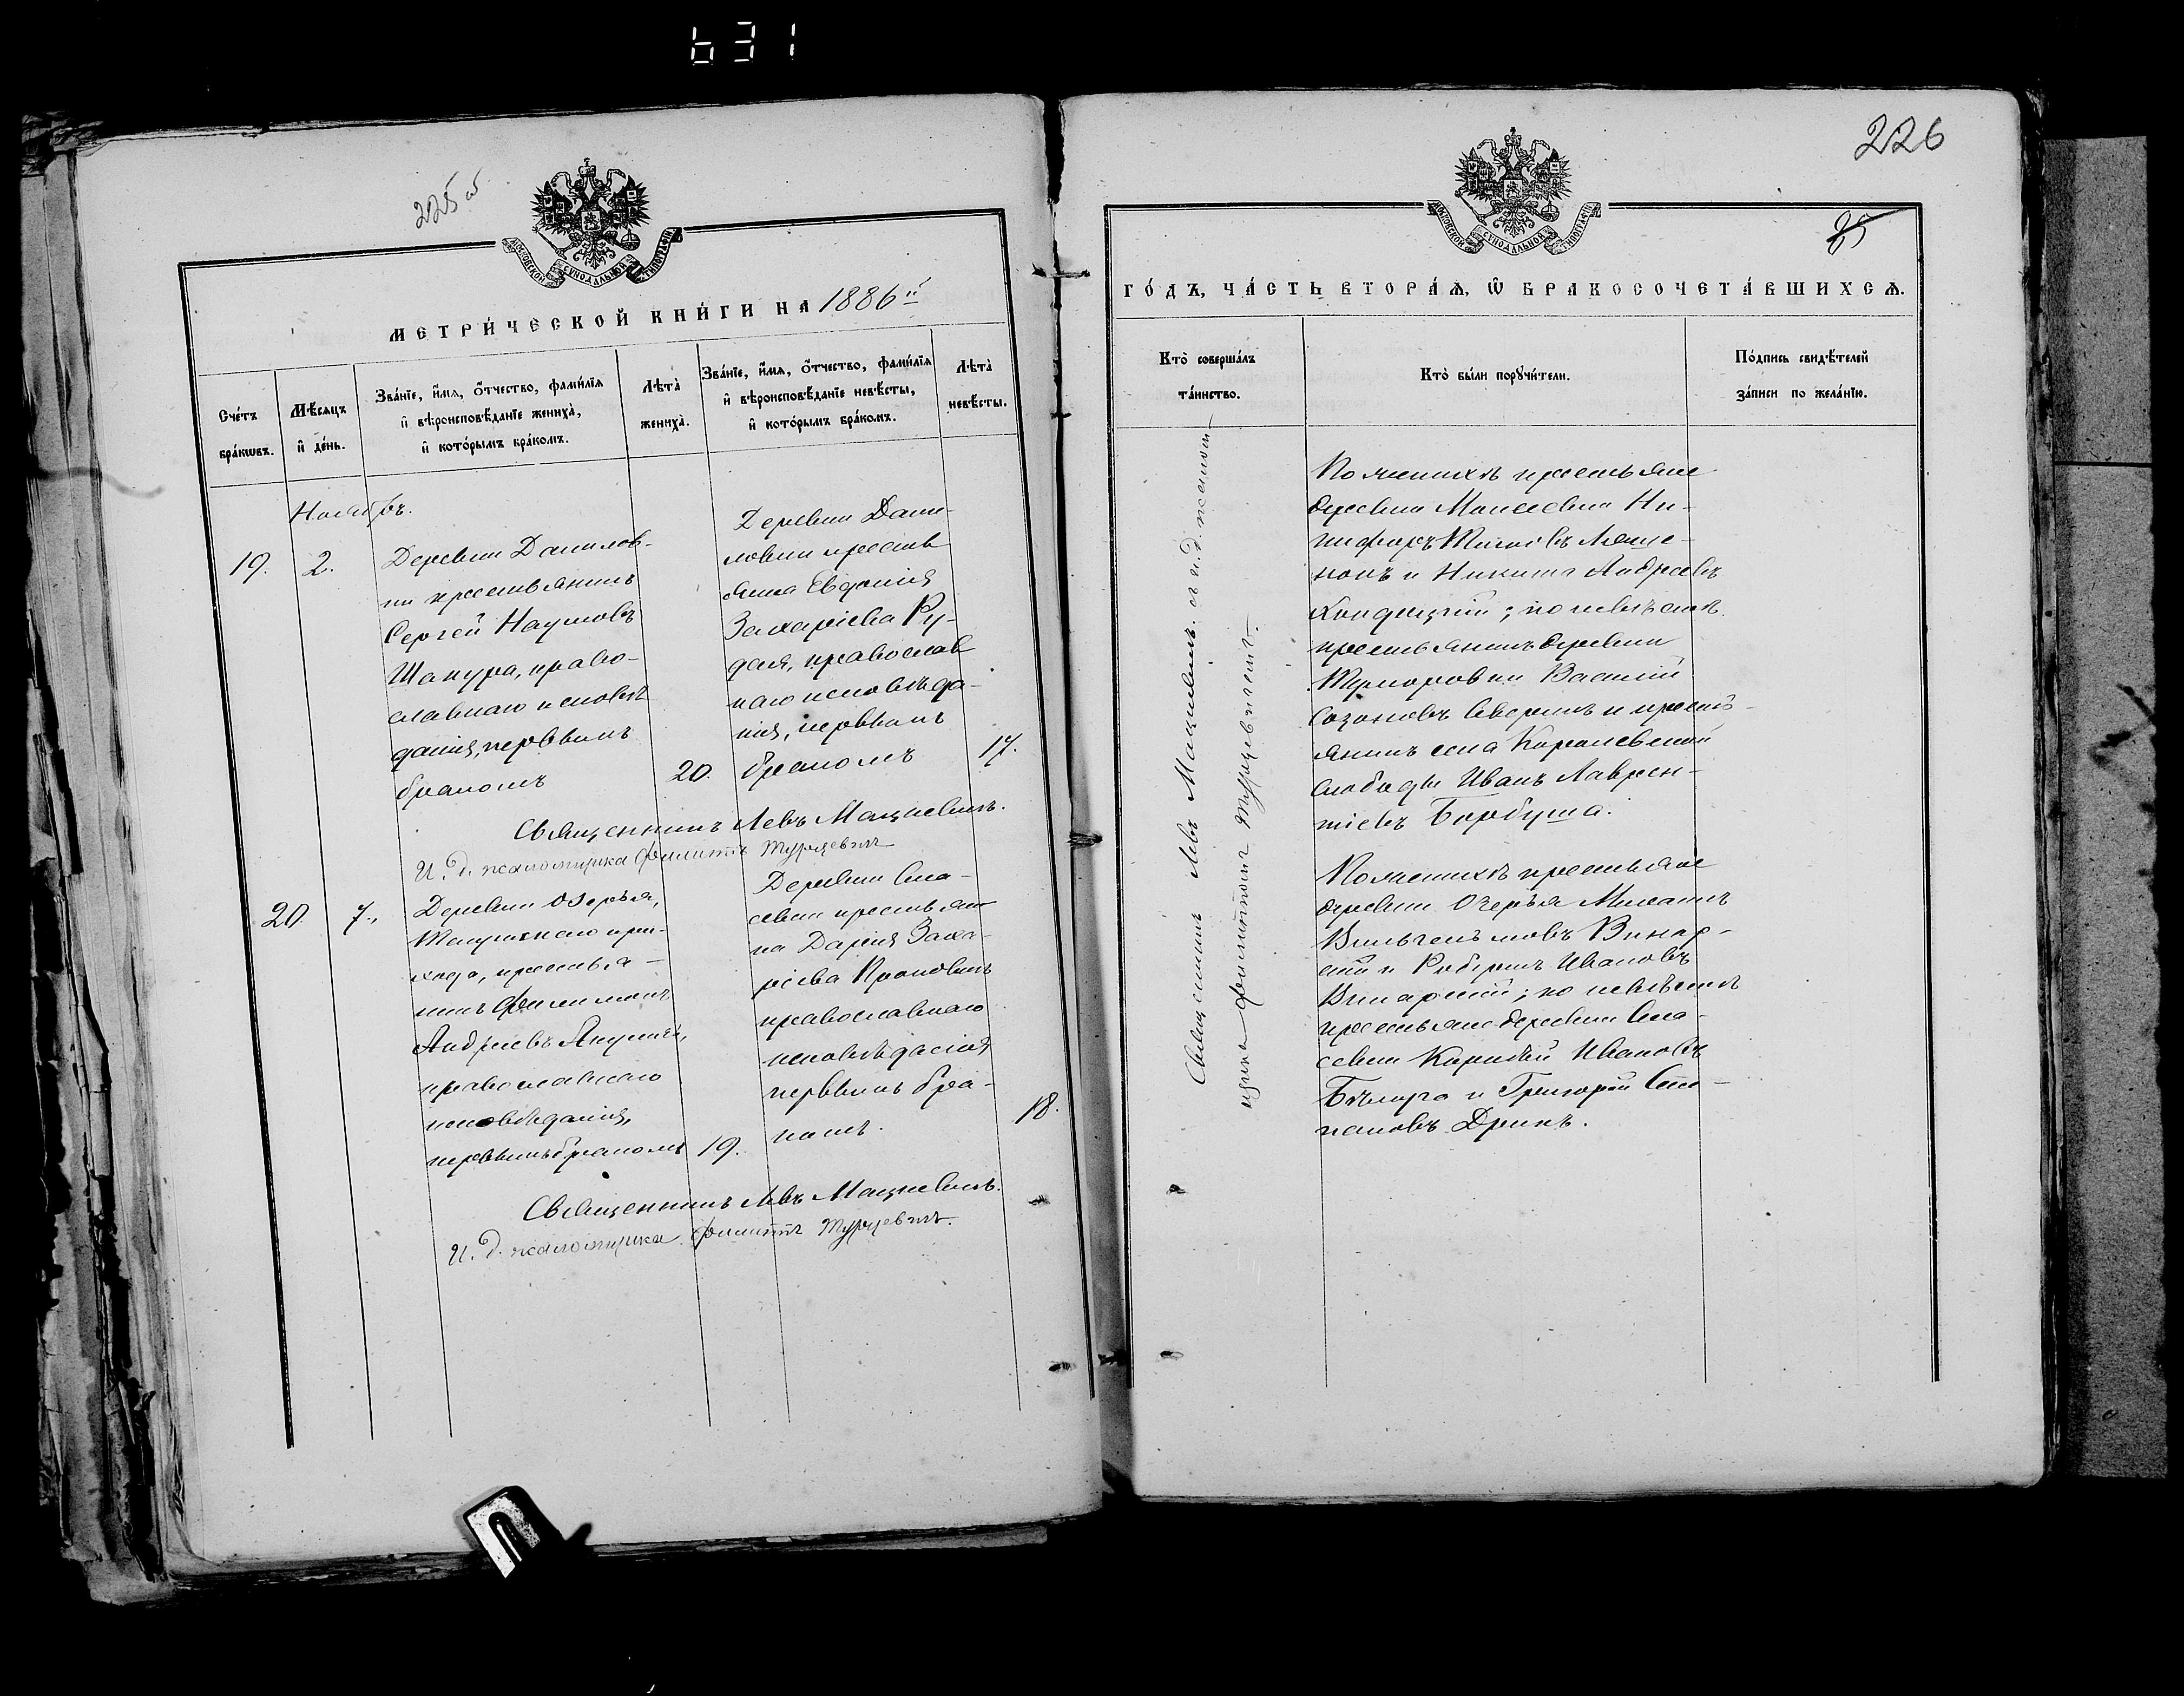 631
225 об
МОСКОВСКОЙ СУНОДАЛЬНОЙ ТИПОГРАФІИ
МЕТРИ́ЧЕСКОЙ КНИ́ГИ НА 1886й
Сче́тъ бра́кωвъ.
Мѣ́сяцъ и҆ де́нь.
Зва́нїе, и҆́мѧ, ѻ҆́тчество, фами́лїѧ
и҆ вѣроисповѣ́данїе жениха̀,
и҆ кото́рымъ бра́комъ.
Лѣта̀ жениха̀.
Зва́нїе, и҆́мѧ, ѻ҆́тчество, фами́лїѧ
и҆ вѣроисповѣ́данїе невѣ́сты,
и҆ кото́рымъ бра́комъ.
Лѣта̀ невѣ́сты.
Ноябрь.
19.
2.
Деревни Данилов-
ки крестьянинъ
Сергей Наумовъ
Шакура, право-
славнаго исповѣ
данія, первымъ
бракомъ
20.
Деревни Дани-
ловки кресть
янка Евдокія
Захаріева Ру-
дая, православ
наго исповѣда-
нія, первымъ
бракомъ
17.
Священникъ Левъ Мацкевичъ.
И. д. псаломщика Филиппъ Турцевичъ
20.
7.
Деревни Озерья,
при-
хода, крестья-
нинъ Филимонъ
Андреевъ
православнаго
исповѣданія,
первымъ бракомъ
19.
Деревни Спа-
севки крестьян
ка Дарія Заха-
ріева
православнаго
исповѣданія
первымъ бра-
комъ.
18.
Священникъ Левъ Мацкевичъ.
И. д. псаломщика Филиппъ Турцевичъ.
226
25
МОСКОВСКОЙ СУНОДАЛЬНОЙ ТИПОГРАФІИ
ГО́ДЪ, ЧА́СТЬ ВТОРА́Ѧ, Ѡ҆ БРАКОСОЧЕТА́ВШИХСѦ.
Кто̀ соверша́лъ
та́инство.
Кто̀ бы́ли порꙋчи́тели.
По́дпись свидѣ́телей
за́писи по жела́нїю.
Священникъ Левъ Мацкевичъ съ и. д. псалом-
щика Филиппомъ Турцевичемъ.
По женихѣ крестьяне
деревни Моисеевки Ни-
кифоръ
и Никита Андреевъ
; по невѣстѣ
крестьянинъ деревни
Василій
и кресть
янинъ села Королевской
слободы Иванъ Лаврен-
тіевъ Борбуша.
По женихѣ крестьяне
деревни Озерья Михаилъ
Вильгельмовъ Винар-
скій и Робертъ Ивановъ
Винарскій; по невѣстѣ
крестьяне деревни Спа-
севки Корнѣй Ивановъ
и Григорій Сте-
пановъ